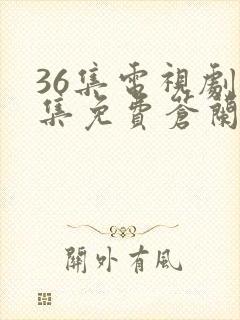 36集電視劇
集免費蒼蘭
關外有風